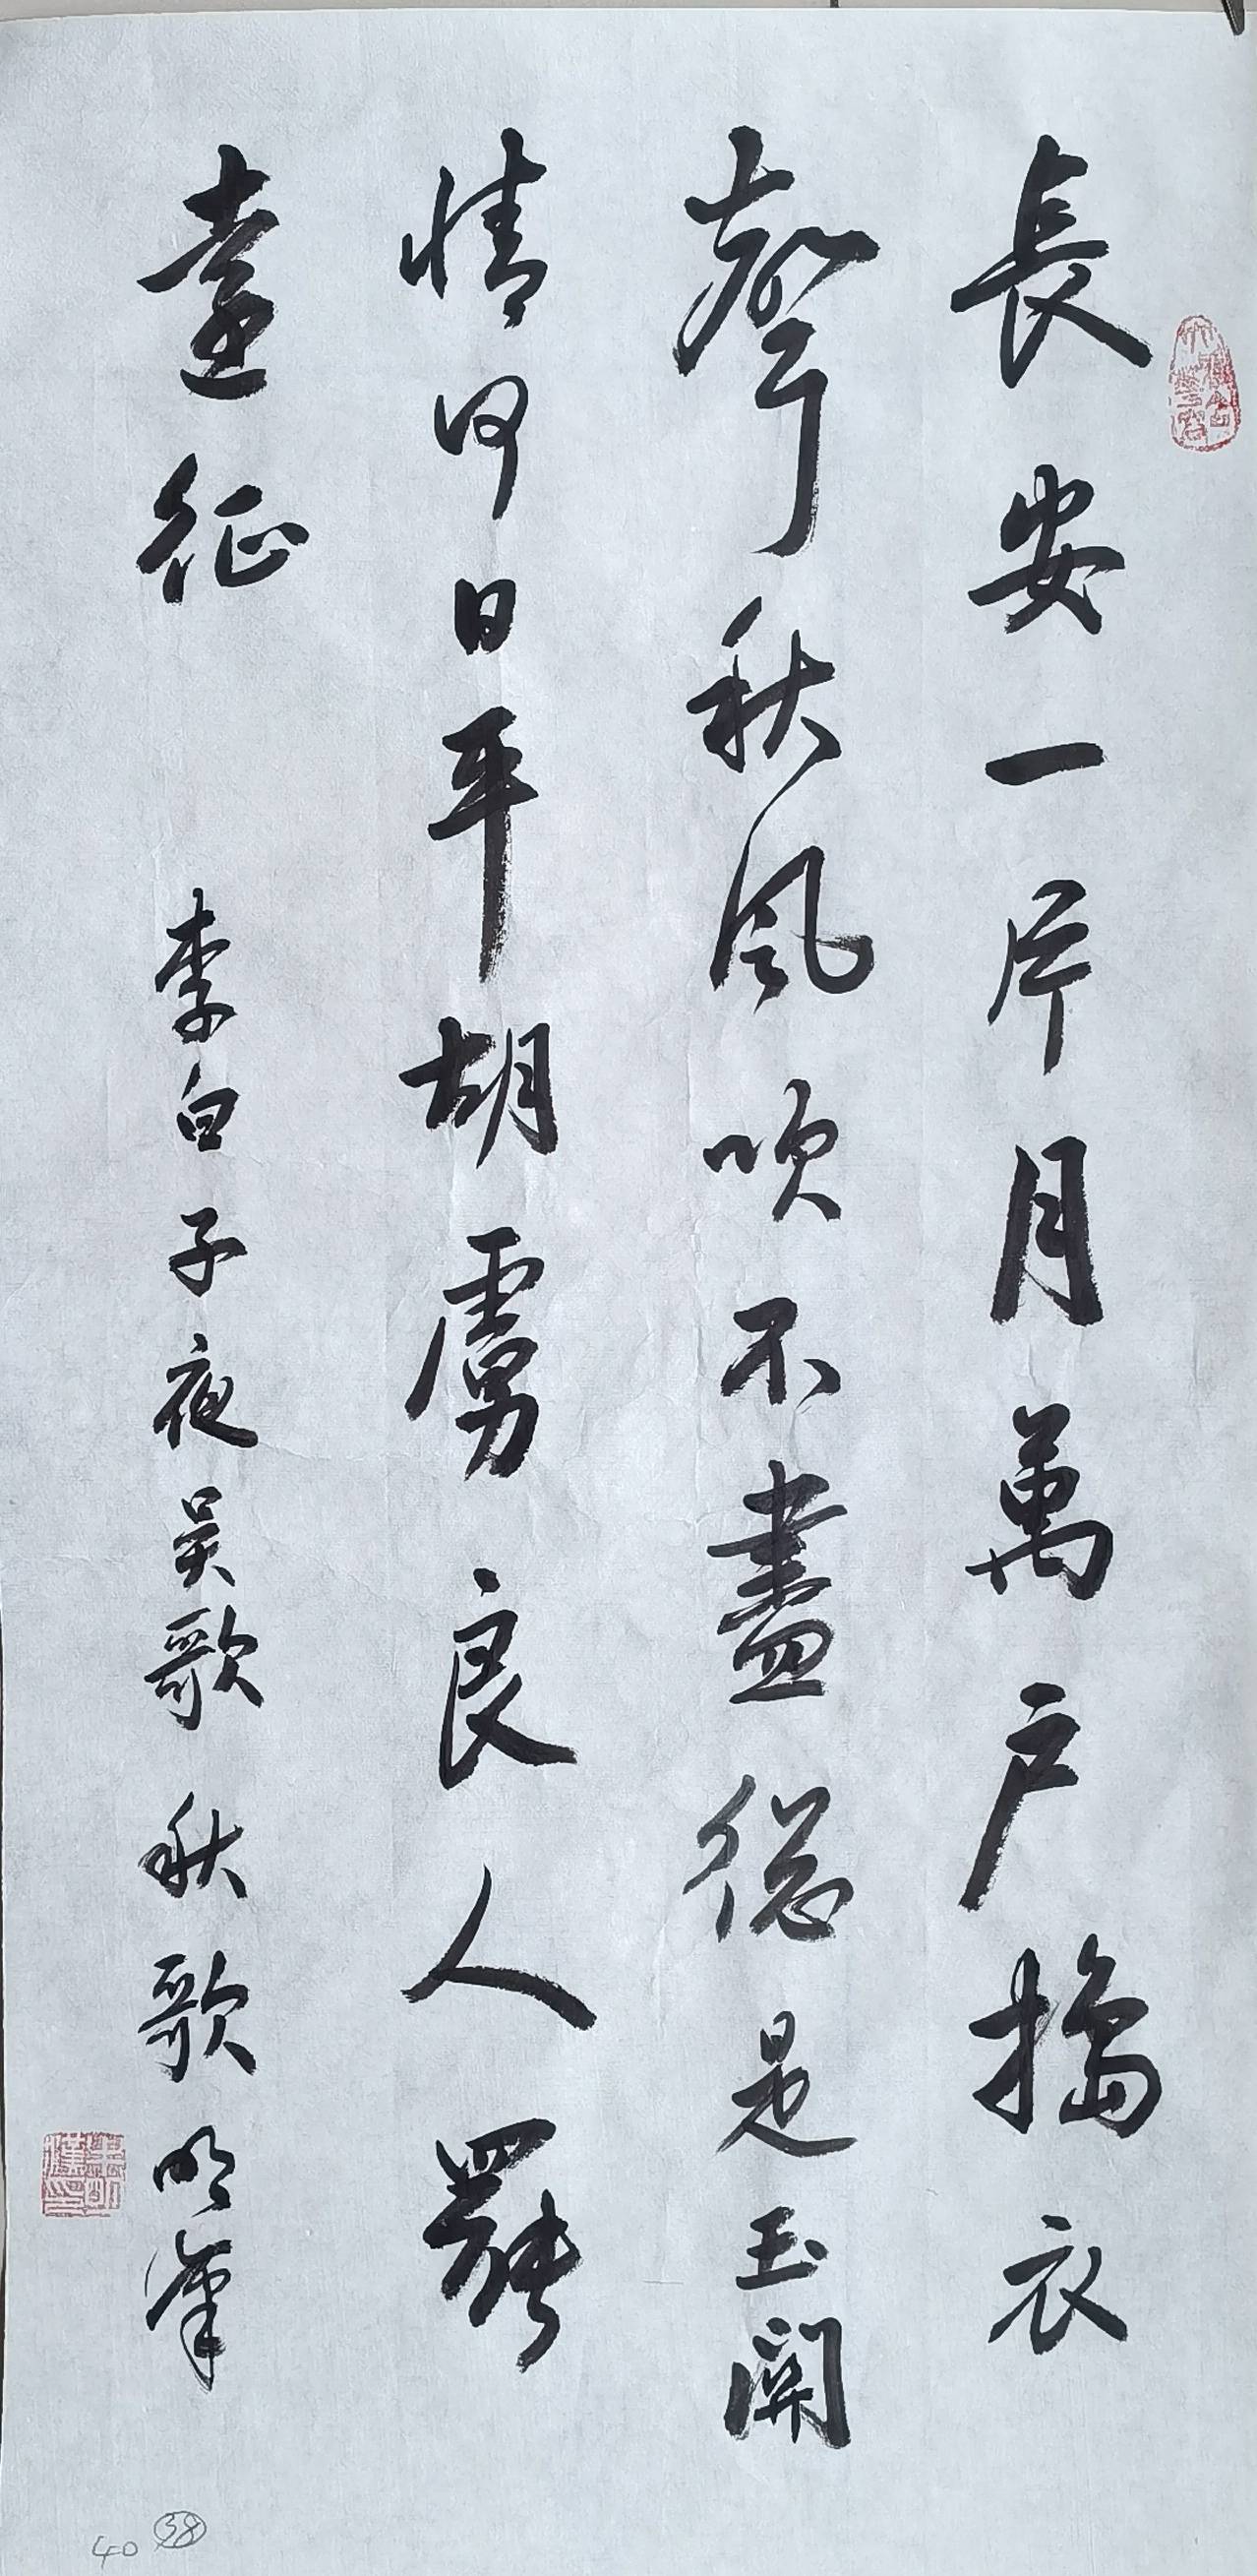 長安一片月萬户搗衣
聲秋風吹不盡總是玉關
情何日平胡虜良人罷
遠征
李白子夜吳歌秋歌明漢
40 38